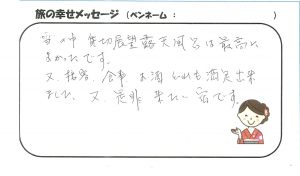 旅の幸せメッセージ (ペンネーム : )
雪の中 貸切展望露天風呂は最高に
よかったです。
又、接客、食事 お酒 いずれも満足出来
ました。又、是非 来たい宿です。